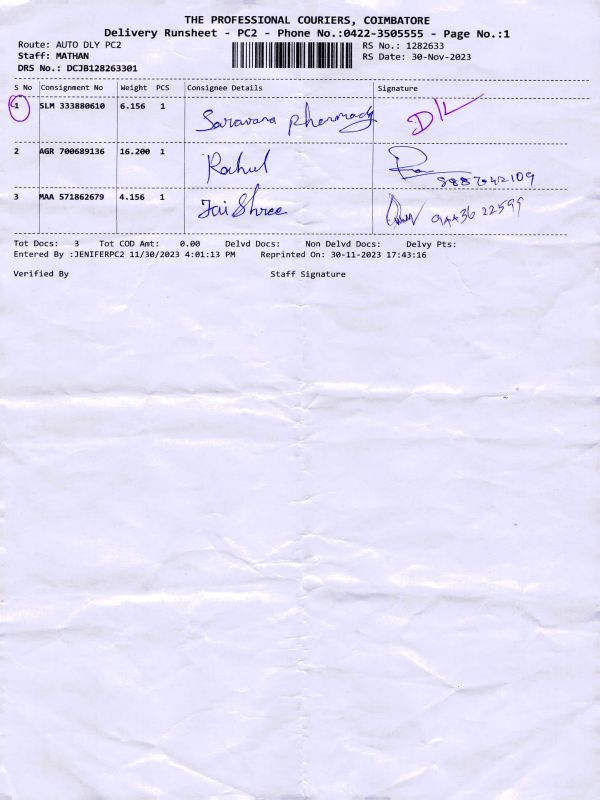 THE PROFESSIONAL COURIERS, COIMBATORE
Delivery Runsheet - PC2 - Phone No.:0422-3505555 - Page No.:1
Route: AUTO DLY PC2
Staff: MATHAN
DRS No.: DCJB128263301
RS No.: 1282633
RS Date: 30-Nov-2023
S No Consignment No Weight PCS Consignee Details Signature
1 SLM 333880610 6.156 1 Saravana D/L
2 AGR 700689136 16.200 1 Rahul
3 MAA 571862679 4.156 1 Jai Shree
Tot Docs: 3 Tot COD Amt: 0.00 Delvd Docs: Non Delvd Docs: Delvy Pts:
Entered By :JENIFERPC2 11/30/2023 4:01:13 PM Reprinted On: 30-11-2023 17:43:16
Verified By Staff Signature